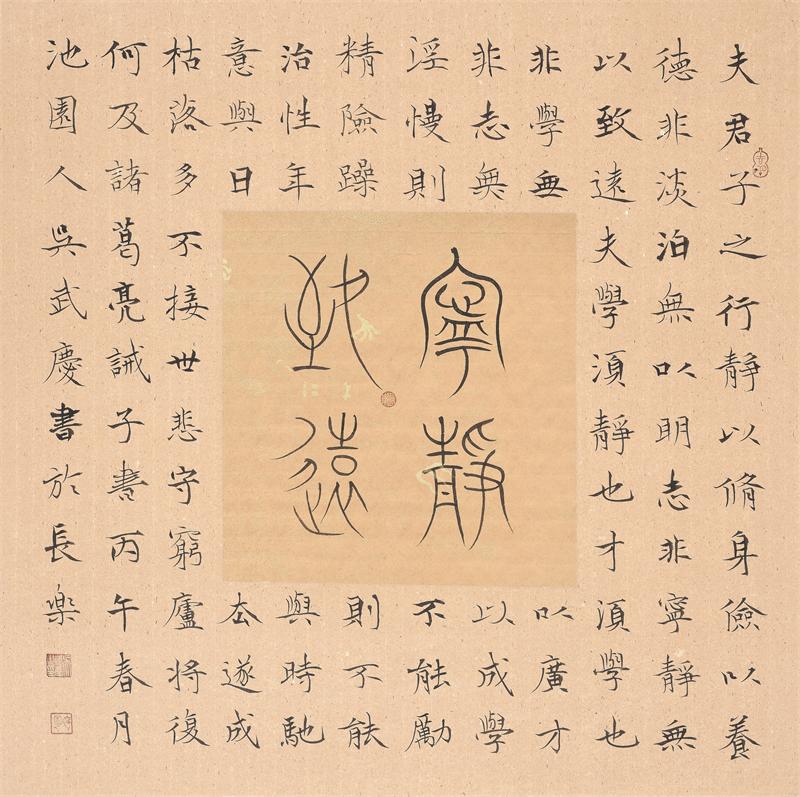 夫君子之行靜以脩身儉以養
德非淡泊無以明志非寧靜無
以致遠夫學湏靜也才湏學也
非學無以廣才
非志無以成學
淫慢則不能勵
精險躁則不能
治性年與時馳
意與日去遂成
枯落多不接世悲守窮廬將復
何及諸葛亮誡子書丙午春月
池園人吳武慶書於長樂
寧靜
致遠